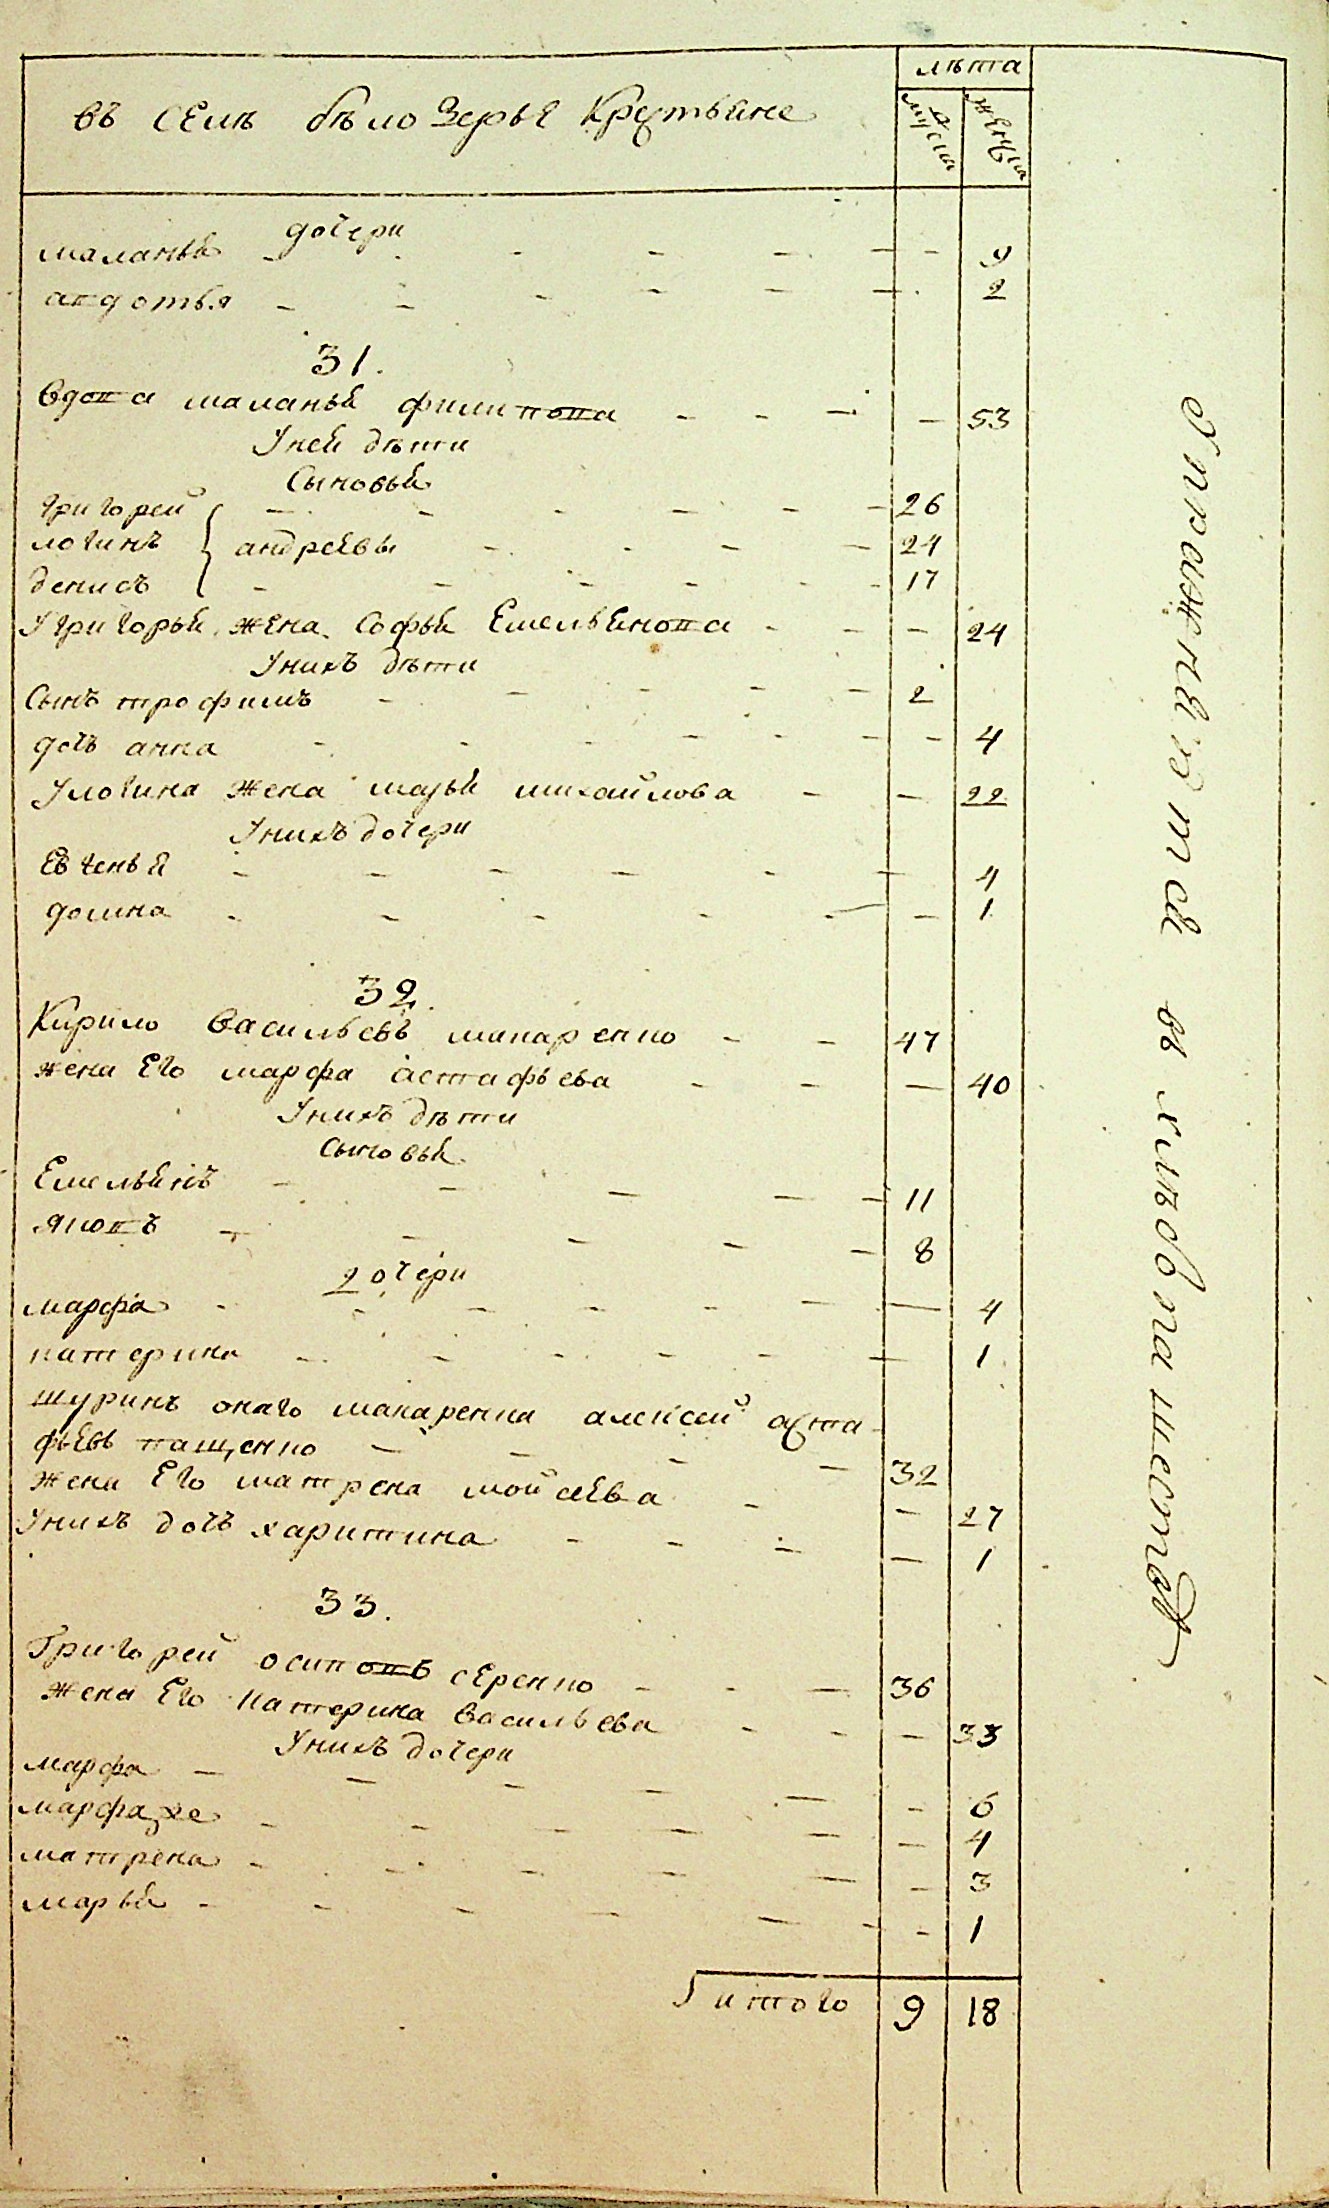 лѣта
въ селѣ бѣло Зерья Крстьяне
мужеска
женска
дочери
маланья - - - - - - 9
авдотья - - - - - - 2
31.
Вдова маланья филипова - - - - 53
Уней дѣти
Сыновья
григорей - - - - - - 26
логинъ андреевы - - - - 24
денисъ - - - - - - 17
Угригорья жена Софья Емельянова - - - 24
Унихъ дѣти
Сынъ трофимъ - - - - - 2
дочь анна - - - - - - - 4
Улогина жена марья михайлова - - 22
Унихъ дочери
Евгенья - - - - - - 4
домна - - - - - - 1
32.
Кирило Васильевъ макаренко - - 47
жена Его марфа астафьева - - - 40
Унихъ дѣти
Сыновья
Емельянъ - - - - - 11
яковъ - - - - - 8
дочери
марфа - - - - - - - 4
катерина - - - - - - 1
шуринъ онаго макаренка алексей аста
фьевъ пащенко - - - - 32
жена Его матрена мойсѣева - - 27
Унихъ дочь харитина - - - - 1
33.
Григорей осиповъ серенко - - - 36
жена Его Катерина васильева - - - 33
Унихъ дочери
марфа - - - - - - 6
марфаже - - - - - - 4
матрена - - - - - - 3
марья - - - - - - - 1
итого 9 18
Упражняется в хлѣбопашестве